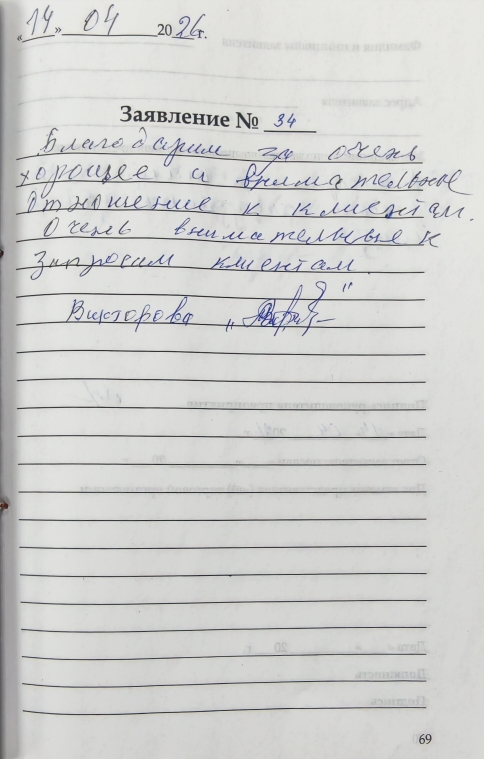 «14» 04 2026г.
Заявление № 34
Благодарим за очень
хорошее и внимательное
отношение к клиентам.
Очень внимательные к
запросам клиентам.
Викторова
69